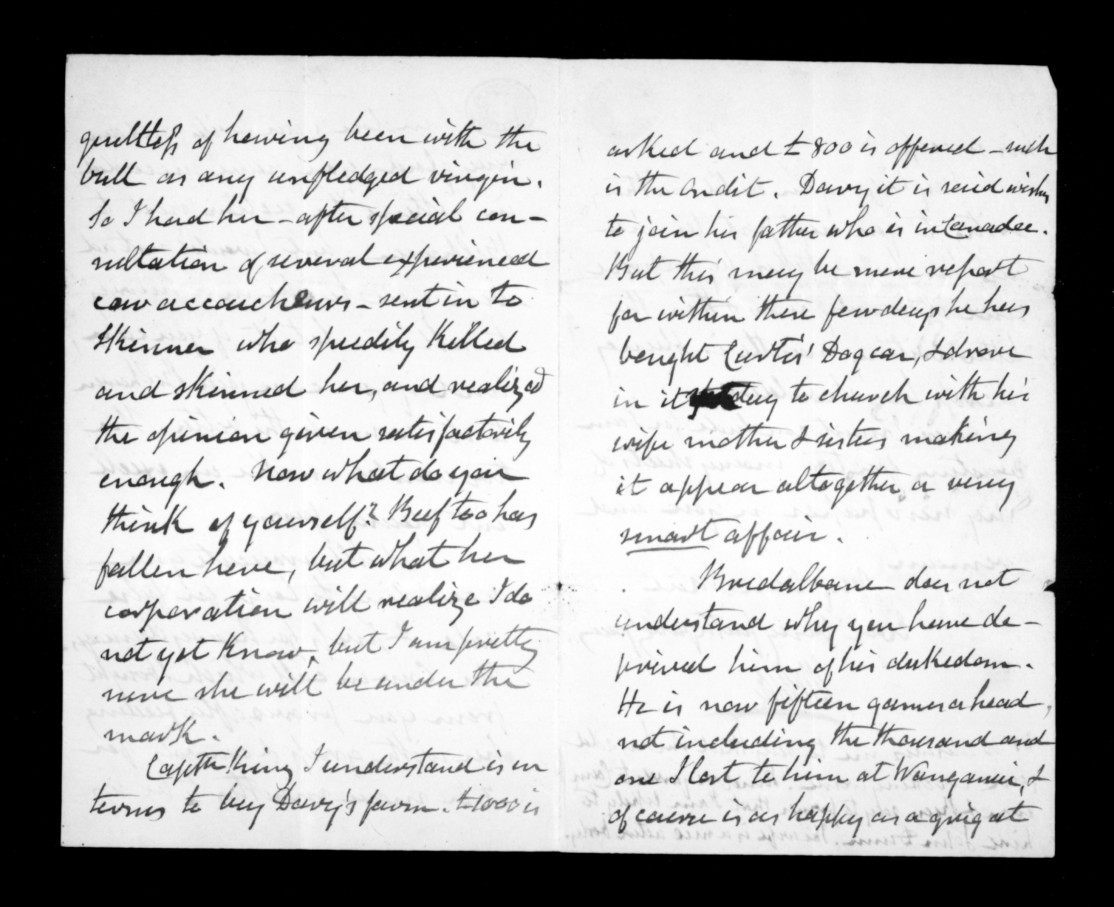 guiltless of having been with the
bull as any unfledged virgin.
So I had her – after special con-
sultation of several experienced
cow accoucheurs – sent in to
Skinner who speedily killed
and skinned her, and realized
the opinion given satisfactorily
enough. Now what do you
think of yourself? Beef too has
fallen here, but what her
corporation will realize I do
not yet know, but I am pretty
sure she will be under the
mark.
Captn King I understand is in
terms to buy Davy's farm. £1000 is
asked and £800 is offered – such
is the on dit. Davy it is said wishes
to join his father who is in Canada.
But this may be mere report
for within these few days he has
bought Curtis' Dogcar, & drove
in it to church with his
wife mother & sisters making
it appear altogether a very
smart affair.
Bredalbane does not
understand why you have de-
prived him of his dukedom.
He is now fifteen games ahead,
not including the thousand and
one I lost to him at Wanganui, &
of course is as happy as a grig at